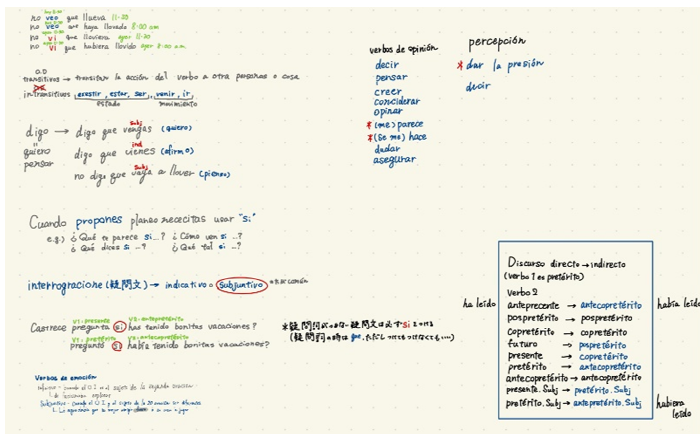 no veo que llueva 11:20
no veo que haya llovido 8:00 am
no vi que lloviera ayer 11:20
no vi que hubiera llovido ayer 8:00 am
O.D
transitivos → transitar la acción del verbo a otra personas o cosa
intransitivos existir, estar, ser, venir, ir
estado movimiento
subj
digo → digo que vengas (quiero)
ind
quiero digo que vienes (afirmo)
subj
pensar no digo que vaya a llover (pienso)
Cuando propones planes nececitas usar "si"
e.g.) ¿Qué te parece si ...? ¿Cómo ven si ...?
¿Qué dices si ...? ¿Qué tal si ...?
interrogracione (疑問文) → indicativo o Subjuntivo
V1: presente V2: antepretérito
Castrece pregunta si has tenido bonitas vacaciones?
V1: pretérito V2: antecopretérito
pregunto si había tenido bonitas vacaciones?
Verbos de emoción
verbos de opinión
decir
pensar
creer
conciderar
opinar
* (me) parece
* (se me) hace
dudar
asegurar
percepción
* dar la presión
decir
Discurso directo → indirecto
(verbo 1 es pretérito)
Verbo 2
ha leído anteprecente → antecopretérito había leído
pospretérito → pospretérito
copretérito → copretérito
futuro → pospretérito
presente → copretérito
pretérito → antecopretérito
antecopretérito → antecopretérito
presente. Subj → pretérito. Subj
pretérito. Subj → antepretérito. Subj hubiera leído